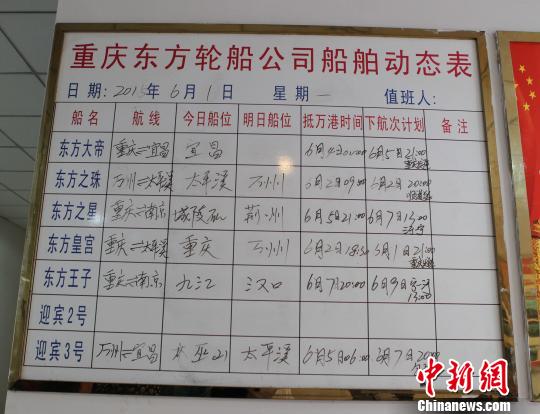 重庆东方轮船公司船舶动态表
日期: 2015年6月1日 星期 一 值班人:
船名 航线 今日船位 明日船位 抵万港时间 下航次计划 备注
东方大帝 重庆=宜昌 宜昌 6月4日01:00 6月5日21:00
东方之珠 万州=太平溪 太平溪 万州 6月2日09:00 6月2日20:00
东方之星 重庆=南京 城陵矶 荆州 6月5日21:00 6月7日13:00
东方皇宫 重庆=太平溪 重庆 万州 6月2日18:30 6月1日21:00
东方王子 重庆=南京 九江 汉口 6月7日20:00 6月9日 13:00
迎宾2号
迎宾3号 万州=宜昌 太平溪 6月5日06:00 6月7日20:00
中新网
Chinanews.com